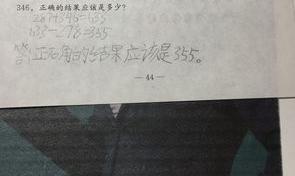 346，正确的结果应该是多少？
287+346=633
633-278=355
答：正确的结果应该是355。
—44—